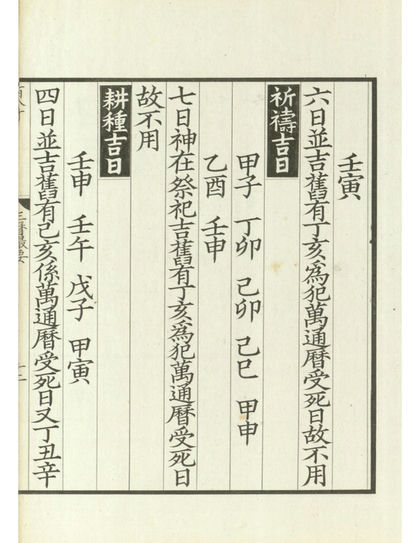 壬寅
六日並吉舊有丁亥為犯萬通曆受死日故不用
祈禱吉日
甲子 丁卯 己卯 己巳 甲申
乙酉 壬申
七日神在祭祀吉舊有丁亥為犯萬通曆受死日
故不用
耕種吉日
壬申 壬午 戊子 甲寅
四日並吉舊有己亥係萬通曆受死日又丁丑辛